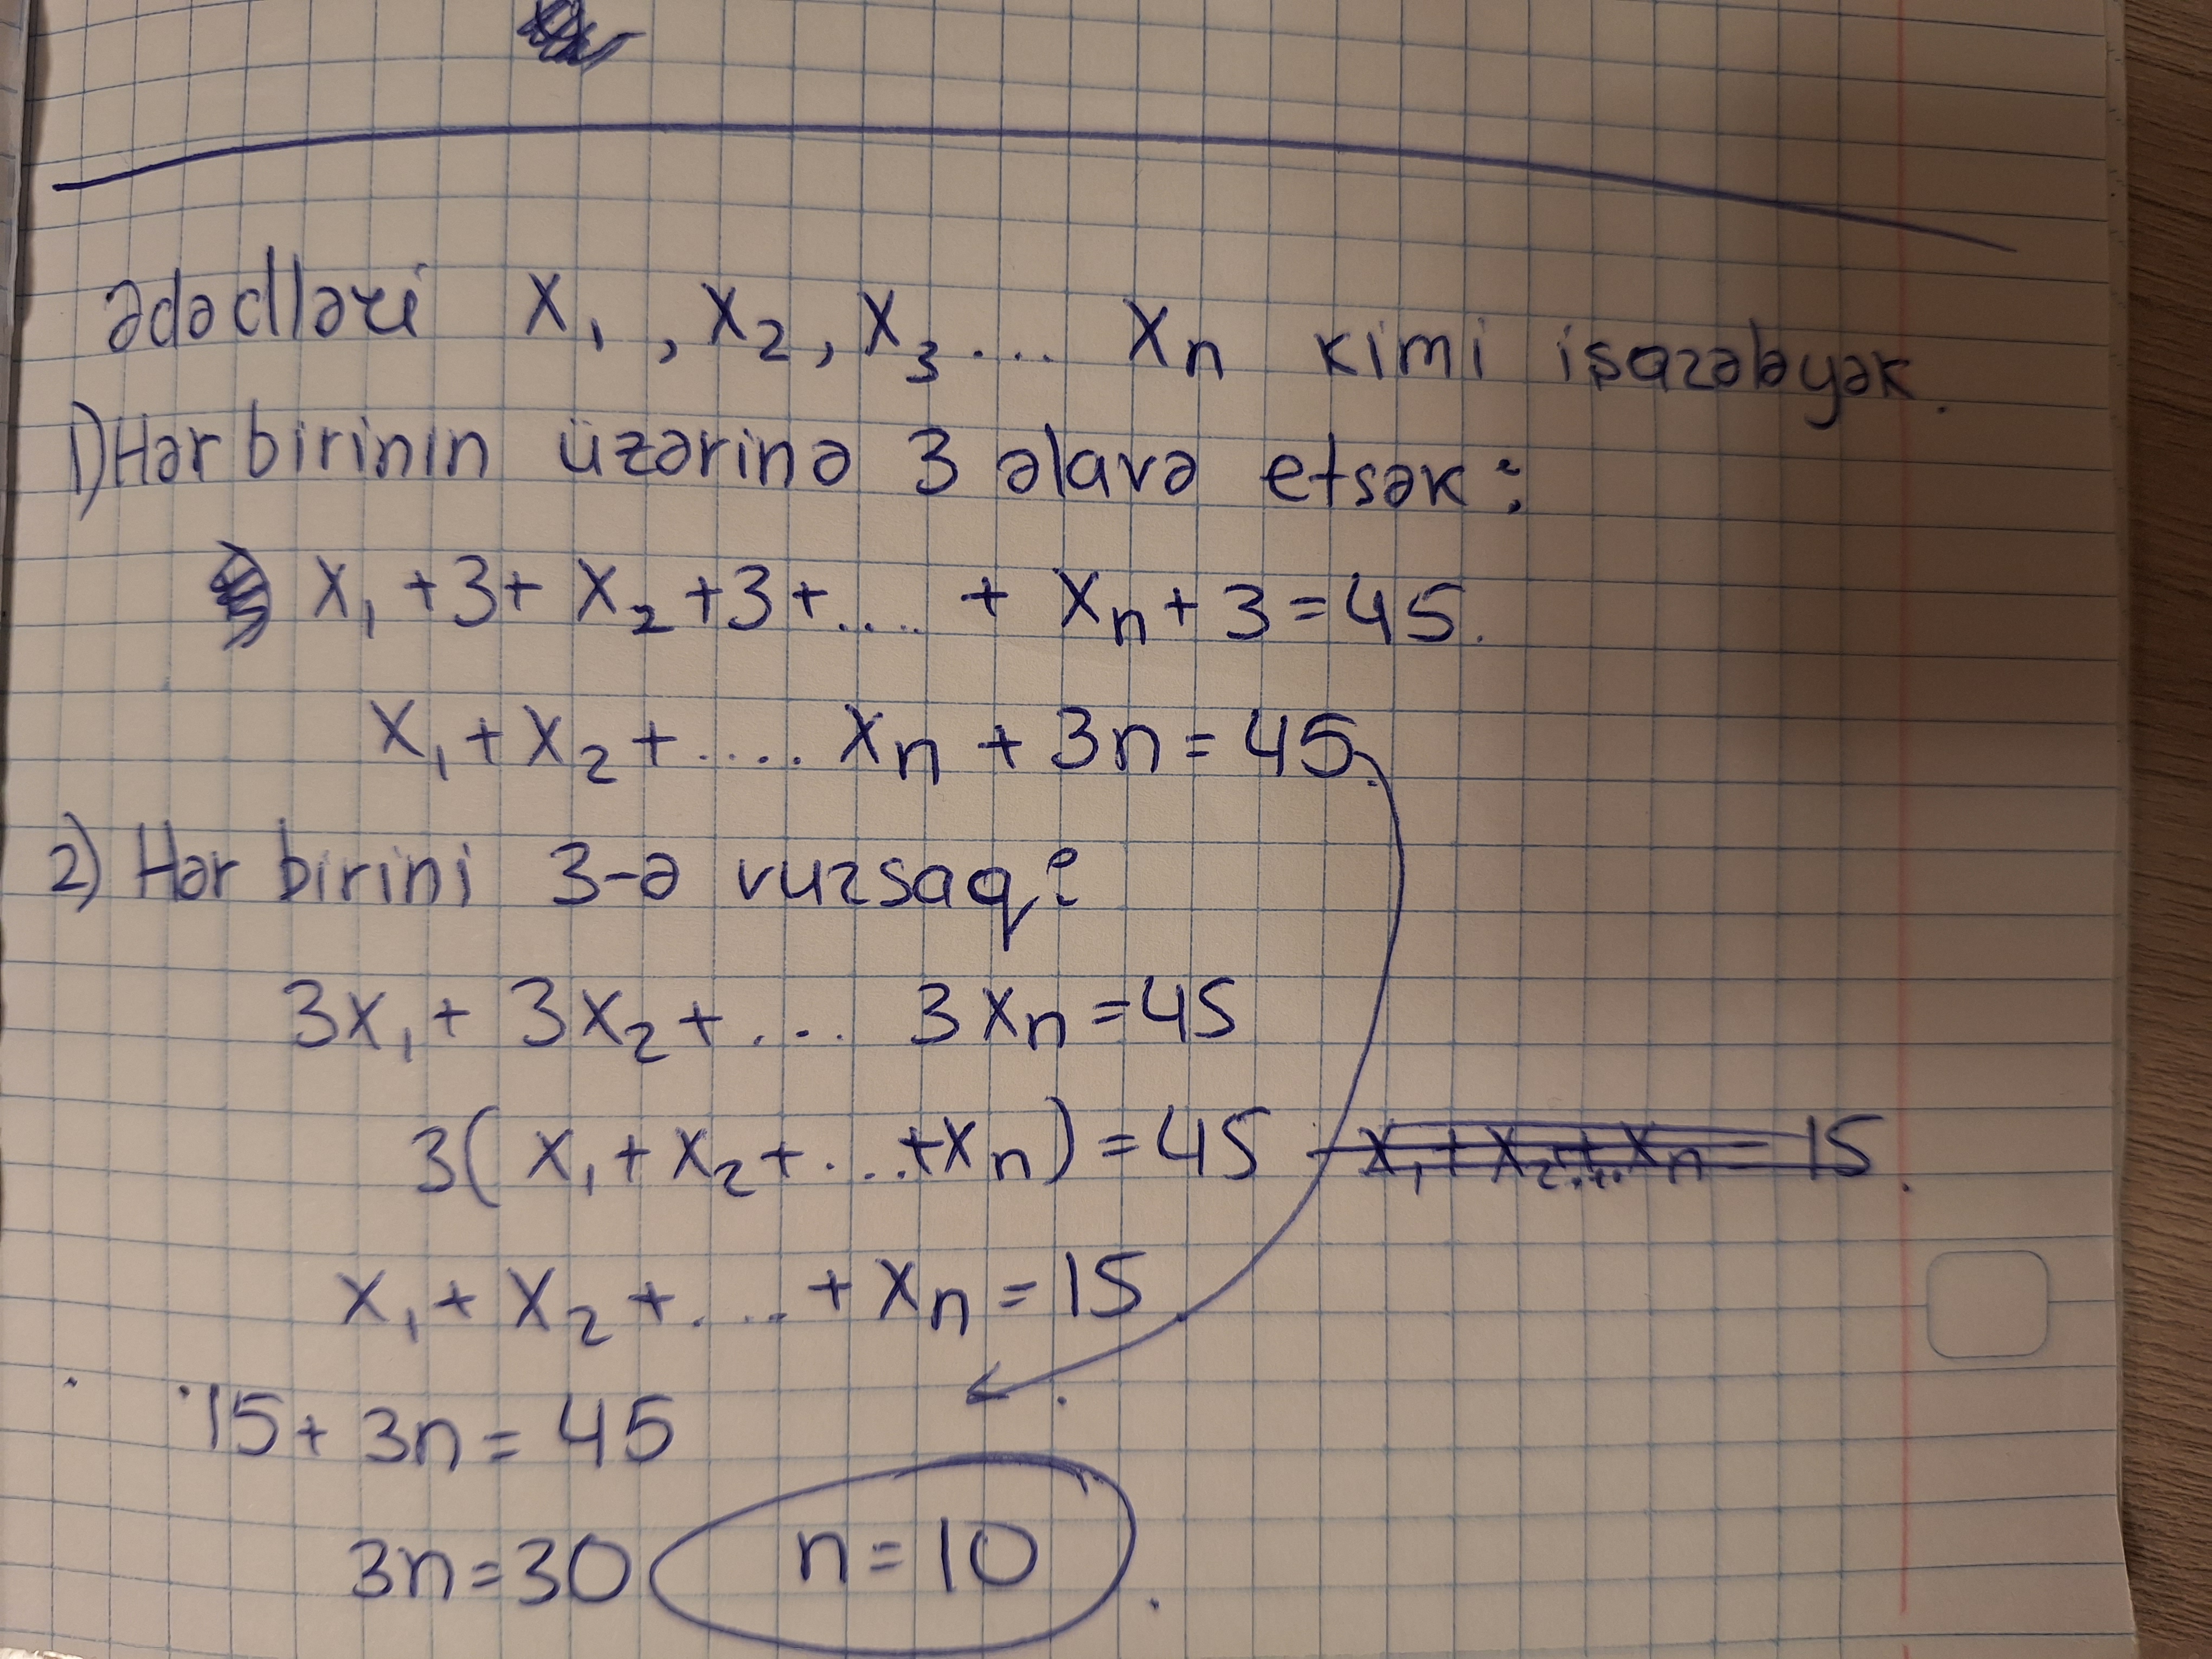 ədədləri x₁, x₂, x₃... xn kimi işarələyək.
1) Hər birinin üzərinə 3 əlavə etsək:
x₁+3+x₂+3+....+xn+3=45.
x₁+x₂+....xn+3n=45.
2) Hər birini 3-ə vursaq:
3x₁+3x₂+....3xn=45
3(x₁+x₂+....+xn)=45 x₁+x₂+...xn=15.
x₁+x₂+....+xn=15.
15+3n=45
3n=30 n=10.